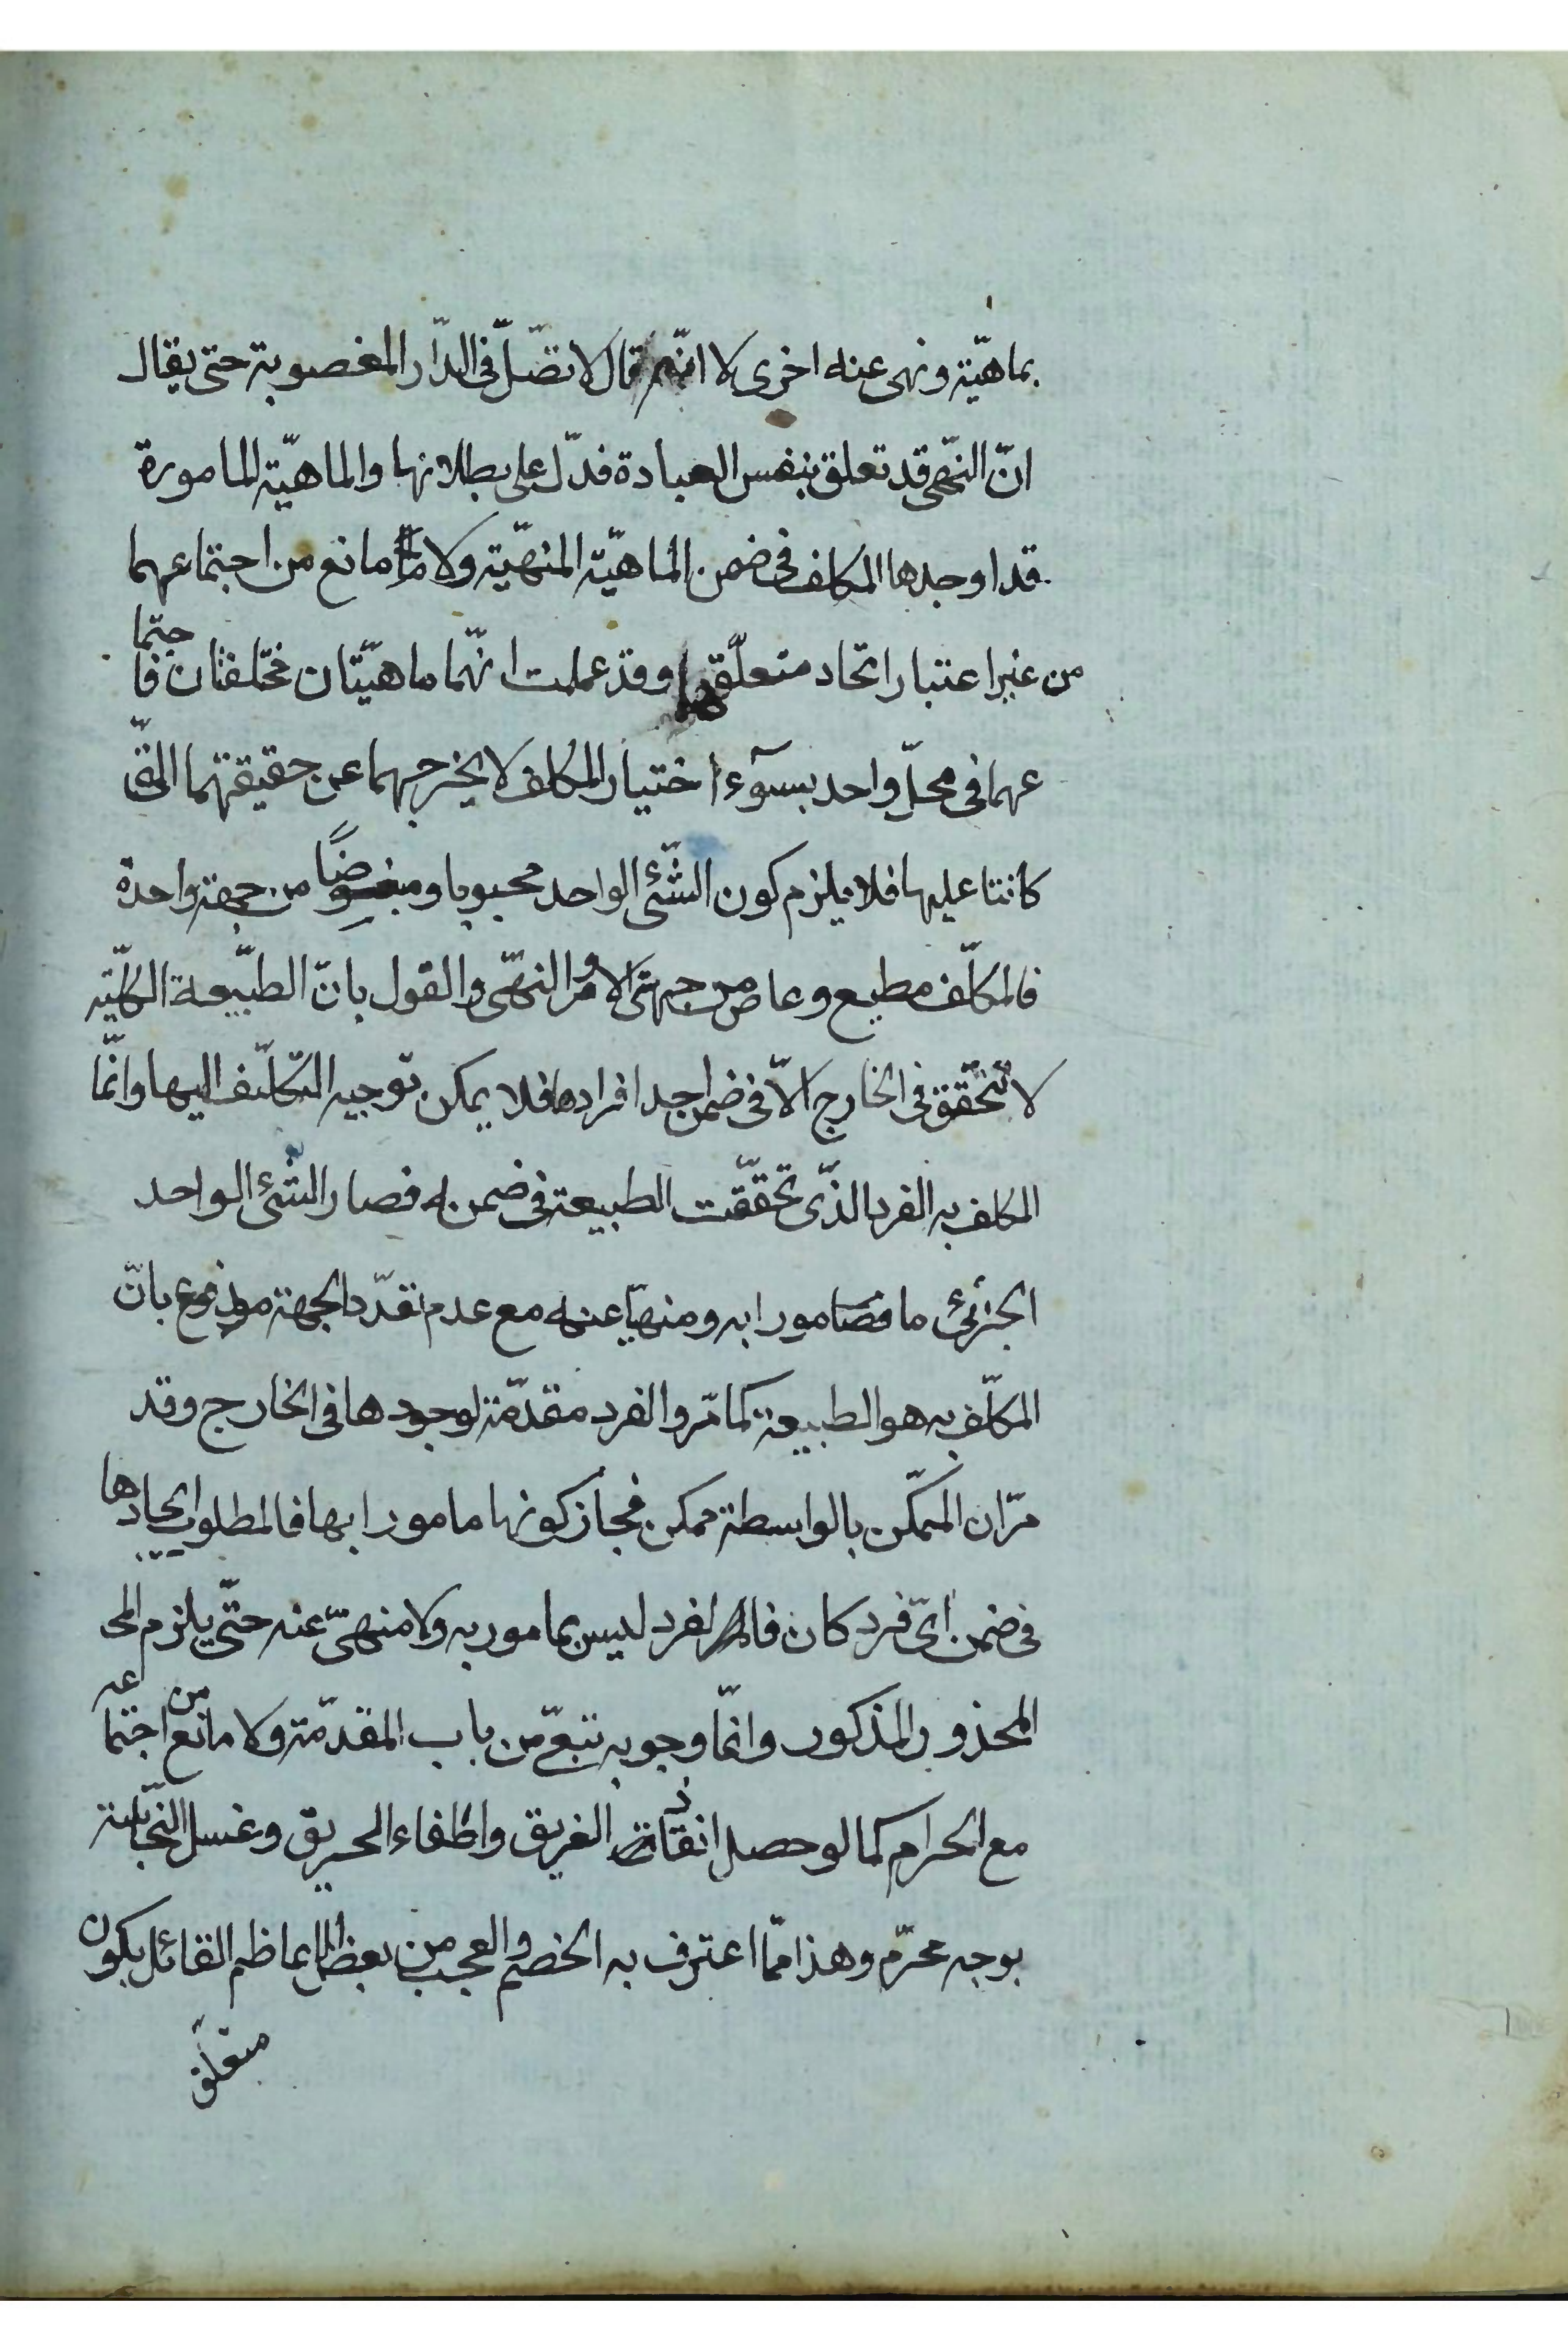 بماهيّة ونهى عنه اخرى لا انّه قال لا تصّل فى الدّار المغصوبة حتى يقال
انّ النّهى قد تعلق بنفس العبادة فدّل على بطلانها والماهيّة المامورة
قد اوجدها المكلف فى ضمن الماهيّة المنهيّة ولا مانع من اجتماعهما
من غير اعتبار اتحاد متعلّقهما وقد علمت انّهما ماهيّتان مختلفتان فاجتما
عهما فى محلّ واحد بسوٓء اختيار المكلف لا يخرجهما عن حقيقتهما التّى
كانتا عليها فلا يلزم كون الشّئ الواحد محبوبا ومبغوضًا من جهة واحدة
فالمكلّف مطيع وعاص من جهتى الامر والنهّى والقول بانّ الطبّيعة الكليّة
لا تتحّقق فى الخارج الّا فى ضمن احد افرادها فلا يمكن توجيه التكّليف اليها وانّما
المكلف به الفرد الذّى تحقّقت الطبيعة فى ضمن له فصار الشئ الواحد
الجزئى مامورا به ومنهيّا عنه مع عدم تعّدد الجهة مدفوع بانّ
المكلّف به هو الطبيعة كما مّر والفرد مقدّمة لوجودها فى الخارج وقد
مّر ان المتمكّن بالواسطة ممكن فجاز كونها مامورا بها فالمطلوب ايجادها
فى ضمن اىّ فرد كان فالفرد ليس بمامور به ولا منهىّ عنه حتّى يلزم المح
المحذور المذكور وانّما وجوبه تبعّى من باب المقدّمة ولا مانع من اجتماعه
مع الحرام كما لو حصل انقاذ الغريق واطفاء الحريق وغسل النّجاسة
بوجه محرّم وهذا ممّا اعترف به الخصم والعجب من بعض الاعاظم القائل بكون
متعلق